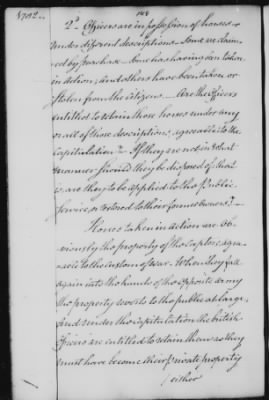 1782.
2d. Officers are in possession of horses
under different descriptions. Some are claimed
by purchase. Some as having been taken
in action; And others have been taken or
stolen from the citizens. Are the Officers
entitled to retain those horses under any
or all of those descriptions, agreeable to the
Capitulation? If they are not in what
manner should they be disposed of, that
is, are they to be applied to the Public
Service, or restored to their former owners?
Horses taken in action are ob-
viously the property of the Captors, agre-
able to the custom of war. When they fall
again into the hands of the opposite army
the property reverts to the public at large.
And under the Capitulation the british
Officers are entitled to retain them as they
must have become their private property
either